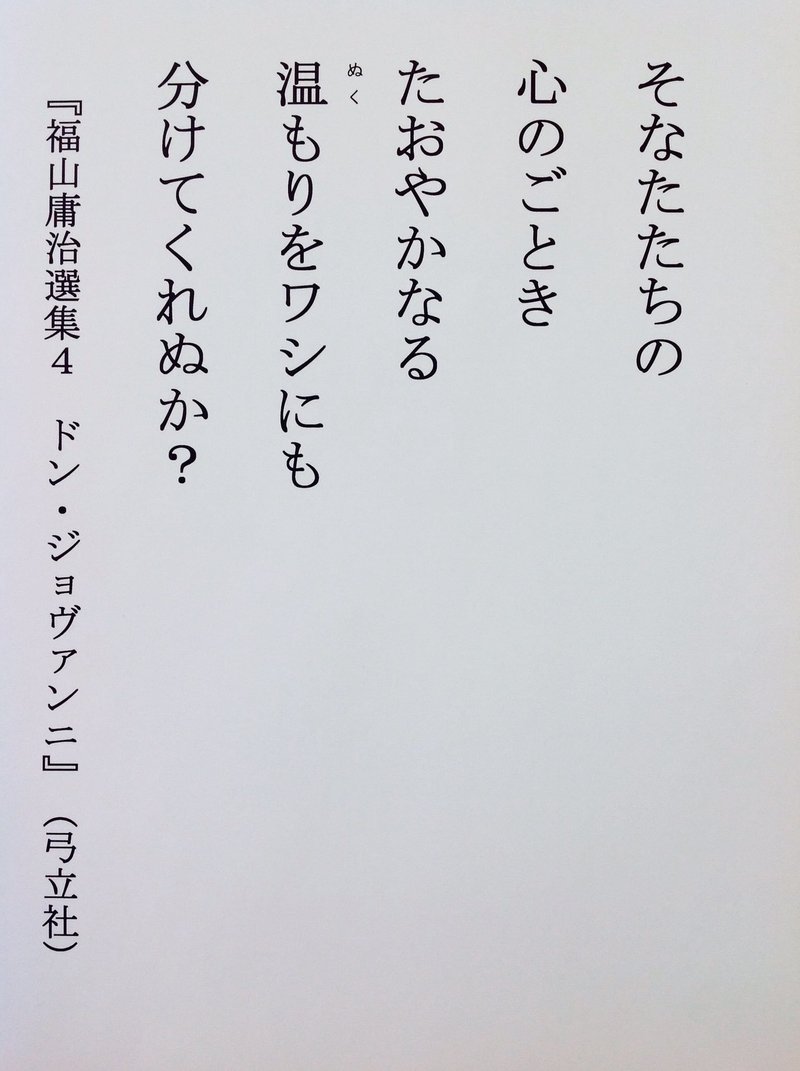 そなたたちの
心のごとき
たおやかなる
ぬく
温もりをワシにも
分けてくれぬか？
『福山庸治選集４　ドン・ジョヴァンニ』（弓立社）